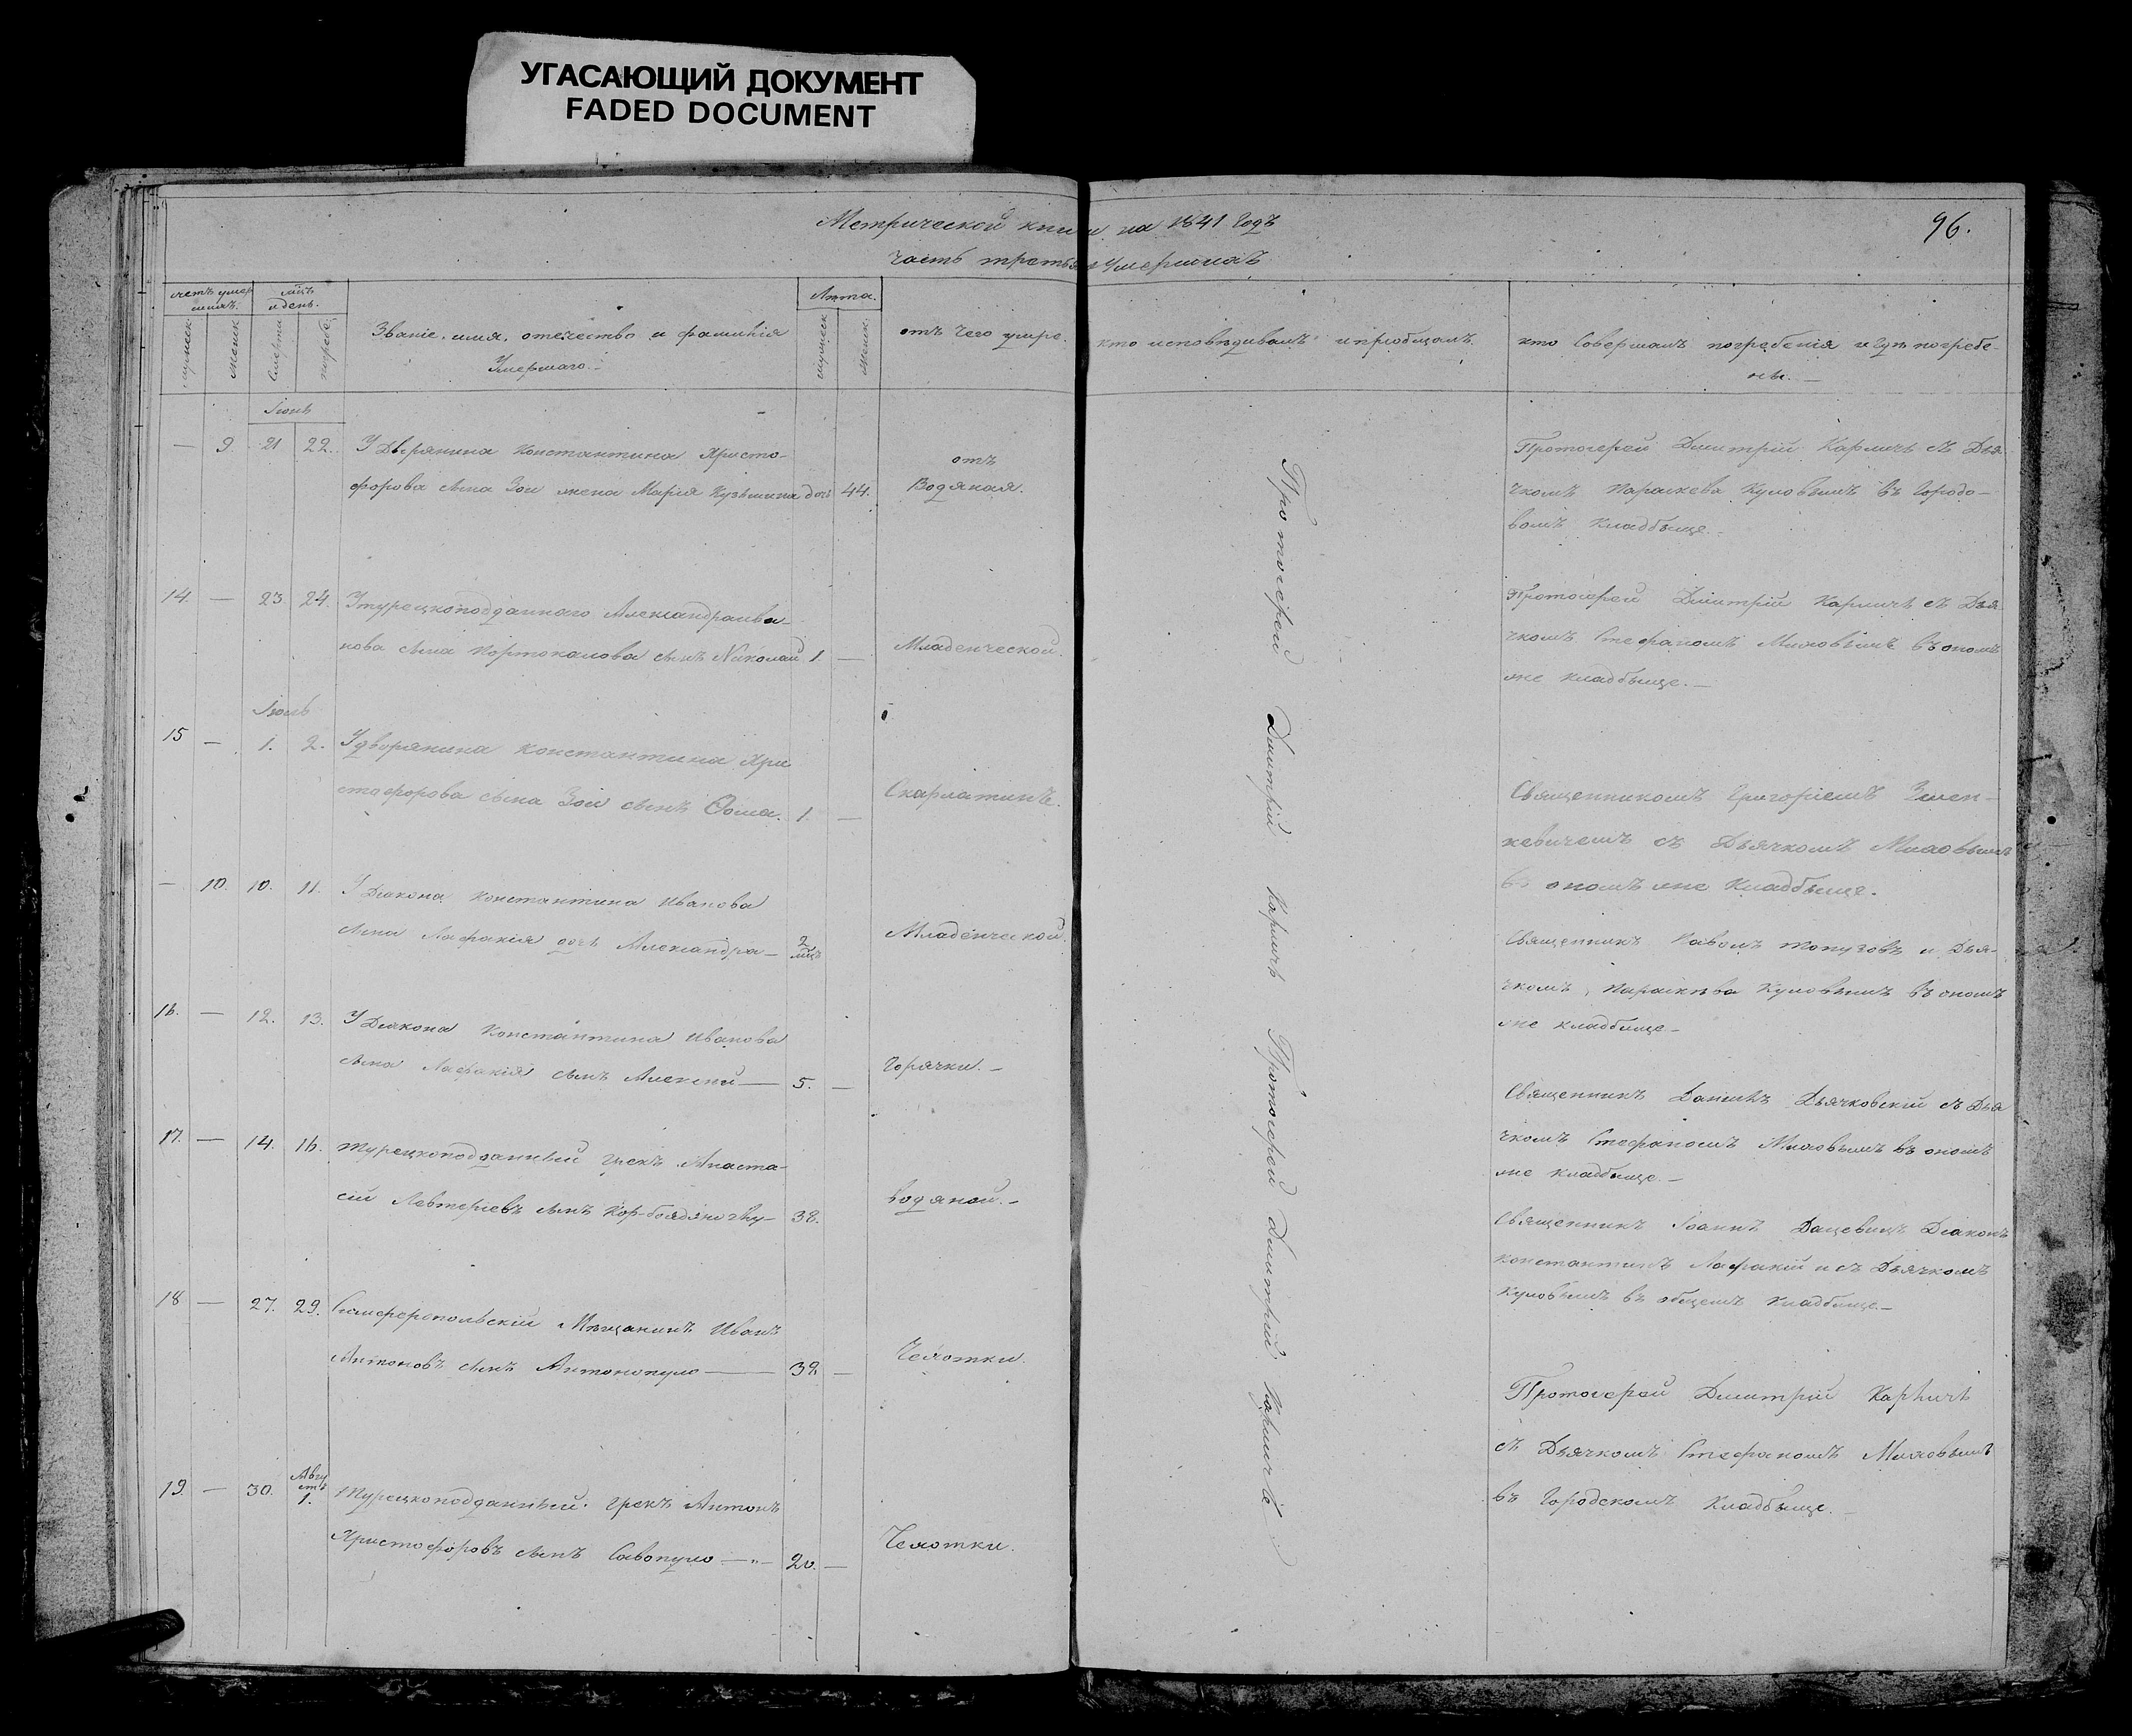 УГАСАЮЩИЙ ДОКУМЕНТ
FADED DOCUMENT
Метрической книги на 1841 годъ
96.
Часть третья Умершихъ
счетъ умер
шихъ.
мцъ
и день.
Звание, имя, отечество и фамилія
Умершаго.
Лѣта.
отъ чего умре.
кто исповѣдивалъ и приобщалъ.
кто совершалъ погребенія и гдѣ погребе-
ны.
мужеск.
женск.
смерти
погреб.
мужеск
женск.
Іюнь
— 9. 21 22. У Дверянина Константина Христо-
форова сына Зои жена Марія Кузьмина дочь 44.
отъ
Водяная.
Протоіерей Димитрій Кармичъ съ Дья
чкомъ Параскева Куловымъ въ Городо-
вомъ Кладбыще.
14. — 23. 24. Утурецкоподданнаго Александраива-
нова сына Портокалова сынъ Николай 1. —
Младенческой.
Протоіерей Димитрій Кармичъ съ Дья
чкомъ Стефаномъ Миловымъ въ ономъ
же кладбыще.—
Іюль
15 — 1. 2. У дворянина Константина Хри
стофорова сына Зои сынъ Ѳома. 1. —
Скарлатинъ.
Священникомъ Григоріемъ
кевичемъ съ Дьячкомъ Миловымъ
въ ономъ же Кладбыще.
— 10. 10. 11. У Диакона Константина Иванова
сына Лафакія дочь Александра— 2
мцъ
Младенческой.
Священникъ Павелъ Топузовъ и Дья-
чкомъ, Параскѣва Куловымъ въ ономъ
же кладбище—
16. — 12. 13. У Диакона Константина Иванова
сына Лафакія сынъ Алексей — 5. —
Горячки.—
Священникъ Даниилъ Дьячковскій съ Дья
чкомъ Стефаномъ Миловымъ въ ономъ
же кладбыще.—
17. — 14. 16. Турецкоподданный грекъ Анаста-
сій Левтеріевъ сынъ — 38.
водяной.—
Священникъ Іоаннъ Дацевичъ Диаконъ
Константинъ Лафакій и съ Дьячкомъ
Куловымъ въ общемъ кладбище—
18 — 27. 29. Симферопольскій Мѣщанинъ Иванъ
Антоновъ сынъ Антонопуло — 39 —
Чехотки.
Протоіерей Димитрій Кармичъ
съ Дьячкомъ Стефаномъ Миловымъ
въ Городскомъ Кладбыще.—
19. — 30. Авгу
стъ
1. Турецкоподданный грекъ Антонъ
Христофоровъ сынъ Савопуло —"— 20. —
Чехотки.
Протоіерей Димитрій Кармичъ Протоіерей Димитрій Кармичъ